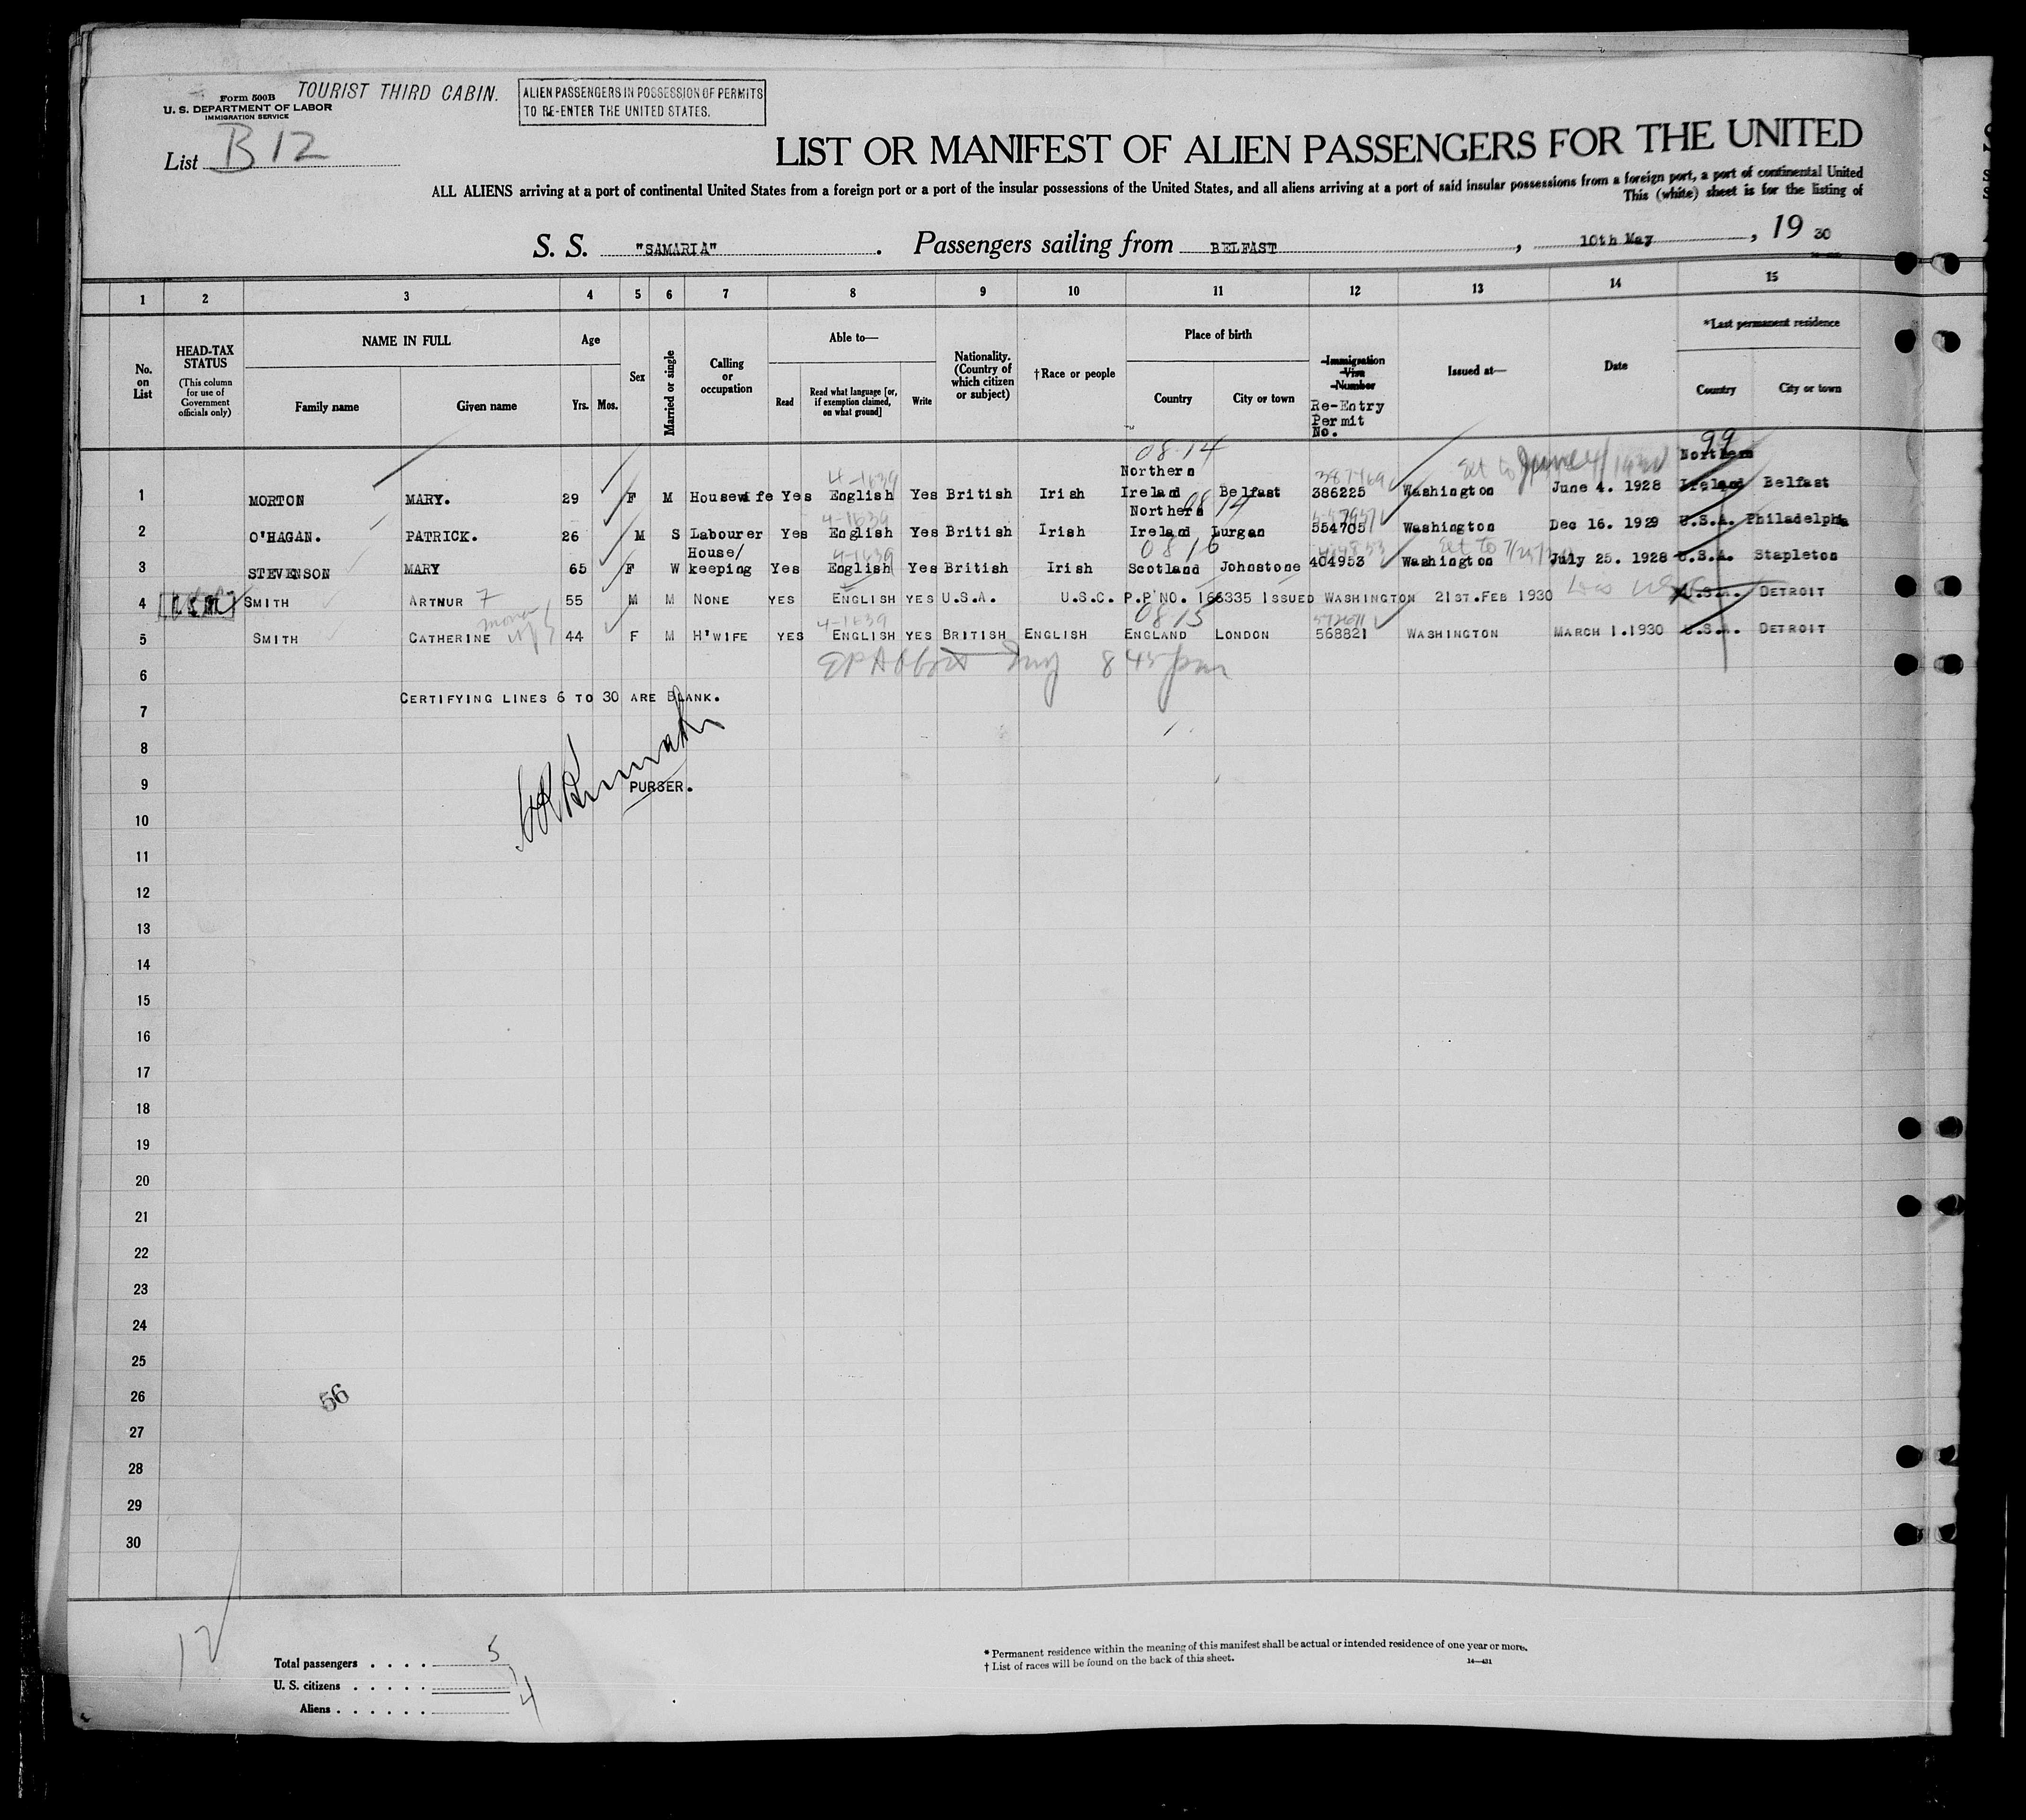 Form 500B
TOURIST THIRD CABIN.
U. S. DEPARTMENT OF LABOR
IMMIGRATION SERVICE
ALIEN PASSENGERS IN POSSESSION OF PERMITS
TO RE-ENTER THE UNITED STATES.
List B 12
LIST OR MANIFEST OF ALIEN PASSENGERS FOR THE UNITED
ALL ALIENS arriving at a port of continental United States from a foreign port or a port of the insular possessions of the United States, and all aliens arriving at a port of said insular possessions from a foreign port, a port of continental United
This (white) sheet is for the listing of
S. S. "SAMARIA". Passengers sailing from BELFAST, 10th May, 19 30
1 2 3 4 5 6 7 8 9 10 11 12 13 14 15
No. on List
HEAD-TAX STATUS
(This column for use of Government officials only)
NAME IN FULL
Family name
Given name
Age
Yrs. Mos.
Sex
Married or single
Calling or occupation
Able to—
Read
Read what language [or, if exemption claimed, on what ground]
Write
Nationality. (Country of which citizen or subject)
†Race or people
Place of birth
Country
City or town
Immigration Visa Number
Re-Entry Permit No.
Issued at—
Date
*Last permanent residence
Country
City or town
08-14
99
4-1639
Northern
Northern
1 MORTON MARY. 29 F M Housewife Yes English Yes British Irish Ireland Belfast 386225 Washington June 4. 1928 Ireland Belfast
08 14
4-1639
Northern
2 O'HAGAN. PATRICK. 26 M S Labourer Yes English Yes British Irish Ireland Lurgan 554705 Washington Dec 16. 1929 U.S.A. Philadelphia
08 16
4-1639
House/
3 STEVENSON MARY 65 F W keeping Yes English Yes British Irish Scotland Johnstone 404953 Washington July 25. 1928 U.S.A. Stapleton
4 SMITH ARTHUR 7 55 M M NONE YES ENGLISH YES U.S.A. U.S.C. P.P.NO. 166335 ISSUED WASHINGTON 21ST.FEB 1930 U.S.A. DETROIT
0815
4-1639
5 SMITH CATHERINE 44 F M H'WIFE YES ENGLISH YES BRITISH ENGLISH ENGLAND LONDON 568821 WASHINGTON MARCH 1.1930 U.S.A. DETROIT
6
CERTIFYING LINES 6 TO 30 ARE BLANK.
7
8
9 PURSER.
10
11
12
13
14
15
16
17
18
19
20
21
22
23
24
25
26
56
27
28
29
30
12
Total passengers . . . . 5
U. S. citizens . . . . .
Aliens . . . . . . 4
* Permanent residence within the meaning of this manifest shall be actual or intended residence of one year or more.
† List of races will be found on the back of this sheet.
14—431